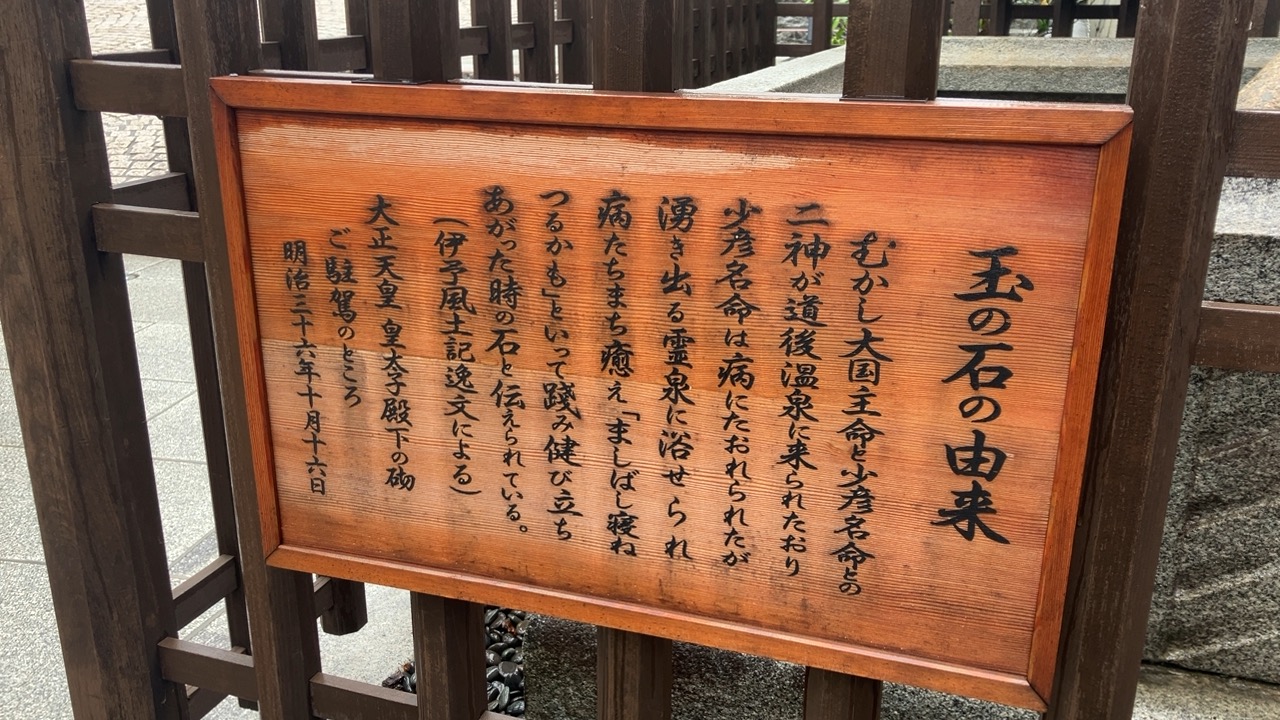 玉の石の由来
むかし大国主命と少彦名命との
二神が道後温泉に来られたおり
少彦名命は病にたおれられたが
湧き出る霊泉に浴せられ
病たちまち癒え「ましばし寝ね
つるかも」といって踐み健び立ち
あがった時の石と伝えられている。
(伊予風土記逸文による)
大正天皇 皇太子殿下の砌
ご駐駕のところ
明治三十六年十月十六日